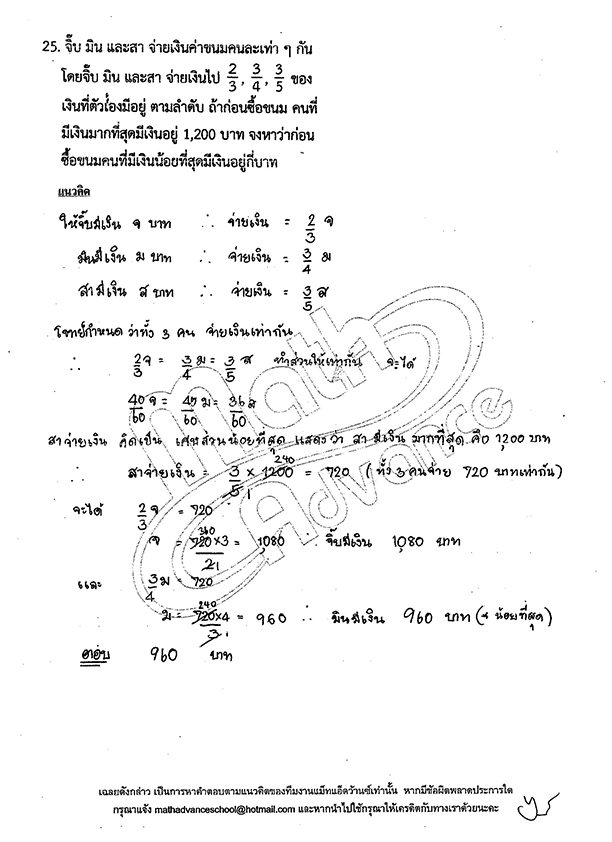 25. จิ๊บ มิน และสา จ่ายเงินค่าขนมคนละเท่า ๆ กัน
โดยจิ๊บ มิน และสา จ่ายเงินไป 2/3, 3/4, 3/5 ของ
เงินที่ตัวเองมีอยู่ ตามลำดับ ถ้าก่อนซื้อขนม คนที่
มีเงินมากที่สุดมีเงินอยู่ 1,200 บาท จงหาว่าก่อน
ซื้อขนมคนที่มีเงินน้อยที่สุดมีเงินอยู่กี่บาท
แนวคิด
ให้จิ๊บมีเงิน จ บาท ∴ จ่ายเงิน = 2/3 จ
มินมีเงิน ม บาท ∴ จ่ายเงิน = 3/4 ม
สามีเงิน ส บาท ∴ จ่ายเงิน = 3/5 ส
โจทย์กำหนดว่าทั้ง 3 คน จ่ายเงินเท่ากัน
∴ 2/3 จ = 3/4 ม = 3/5 ส ทำส่วนให้เท่ากัน จะได้
40/60 จ = 45/60 ม = 36/60 ส
สาจ่ายเงิน คิดเป็น เศษส่วนน้อยที่สุด แสดงว่า สามีเงิน มากที่สุด คือ 1,200 บาท
สาจ่ายเงิน = 3/5 × 1200 = 720 (ทั้ง 3 คนจ่าย 720 บาทเท่ากัน)
จะได้ 2/3 จ = 720
จ = 720×3/2 = 1,080 ∴ จิ๊บมีเงิน 1,080 บาท
และ 3/4 ม = 720
ม = 720×4/3 = 960 ∴ มินมีเงิน 960 บาท (น้อยที่สุด)
ตอบ 960 บาท
Math Advance
เฉลยดังกล่าว เป็นการหาคำตอบตามแนวคิดของทีมงานแม็ทแอ็ดวานซ์เท่านั้น หากมีข้อผิดพลาดประการใด
กรุณาแจ้ง mathadvanceschool@hotmail.com และหากนำไปใช้กรุณาให้เครดิตกับทางเราด้วยนะคะ